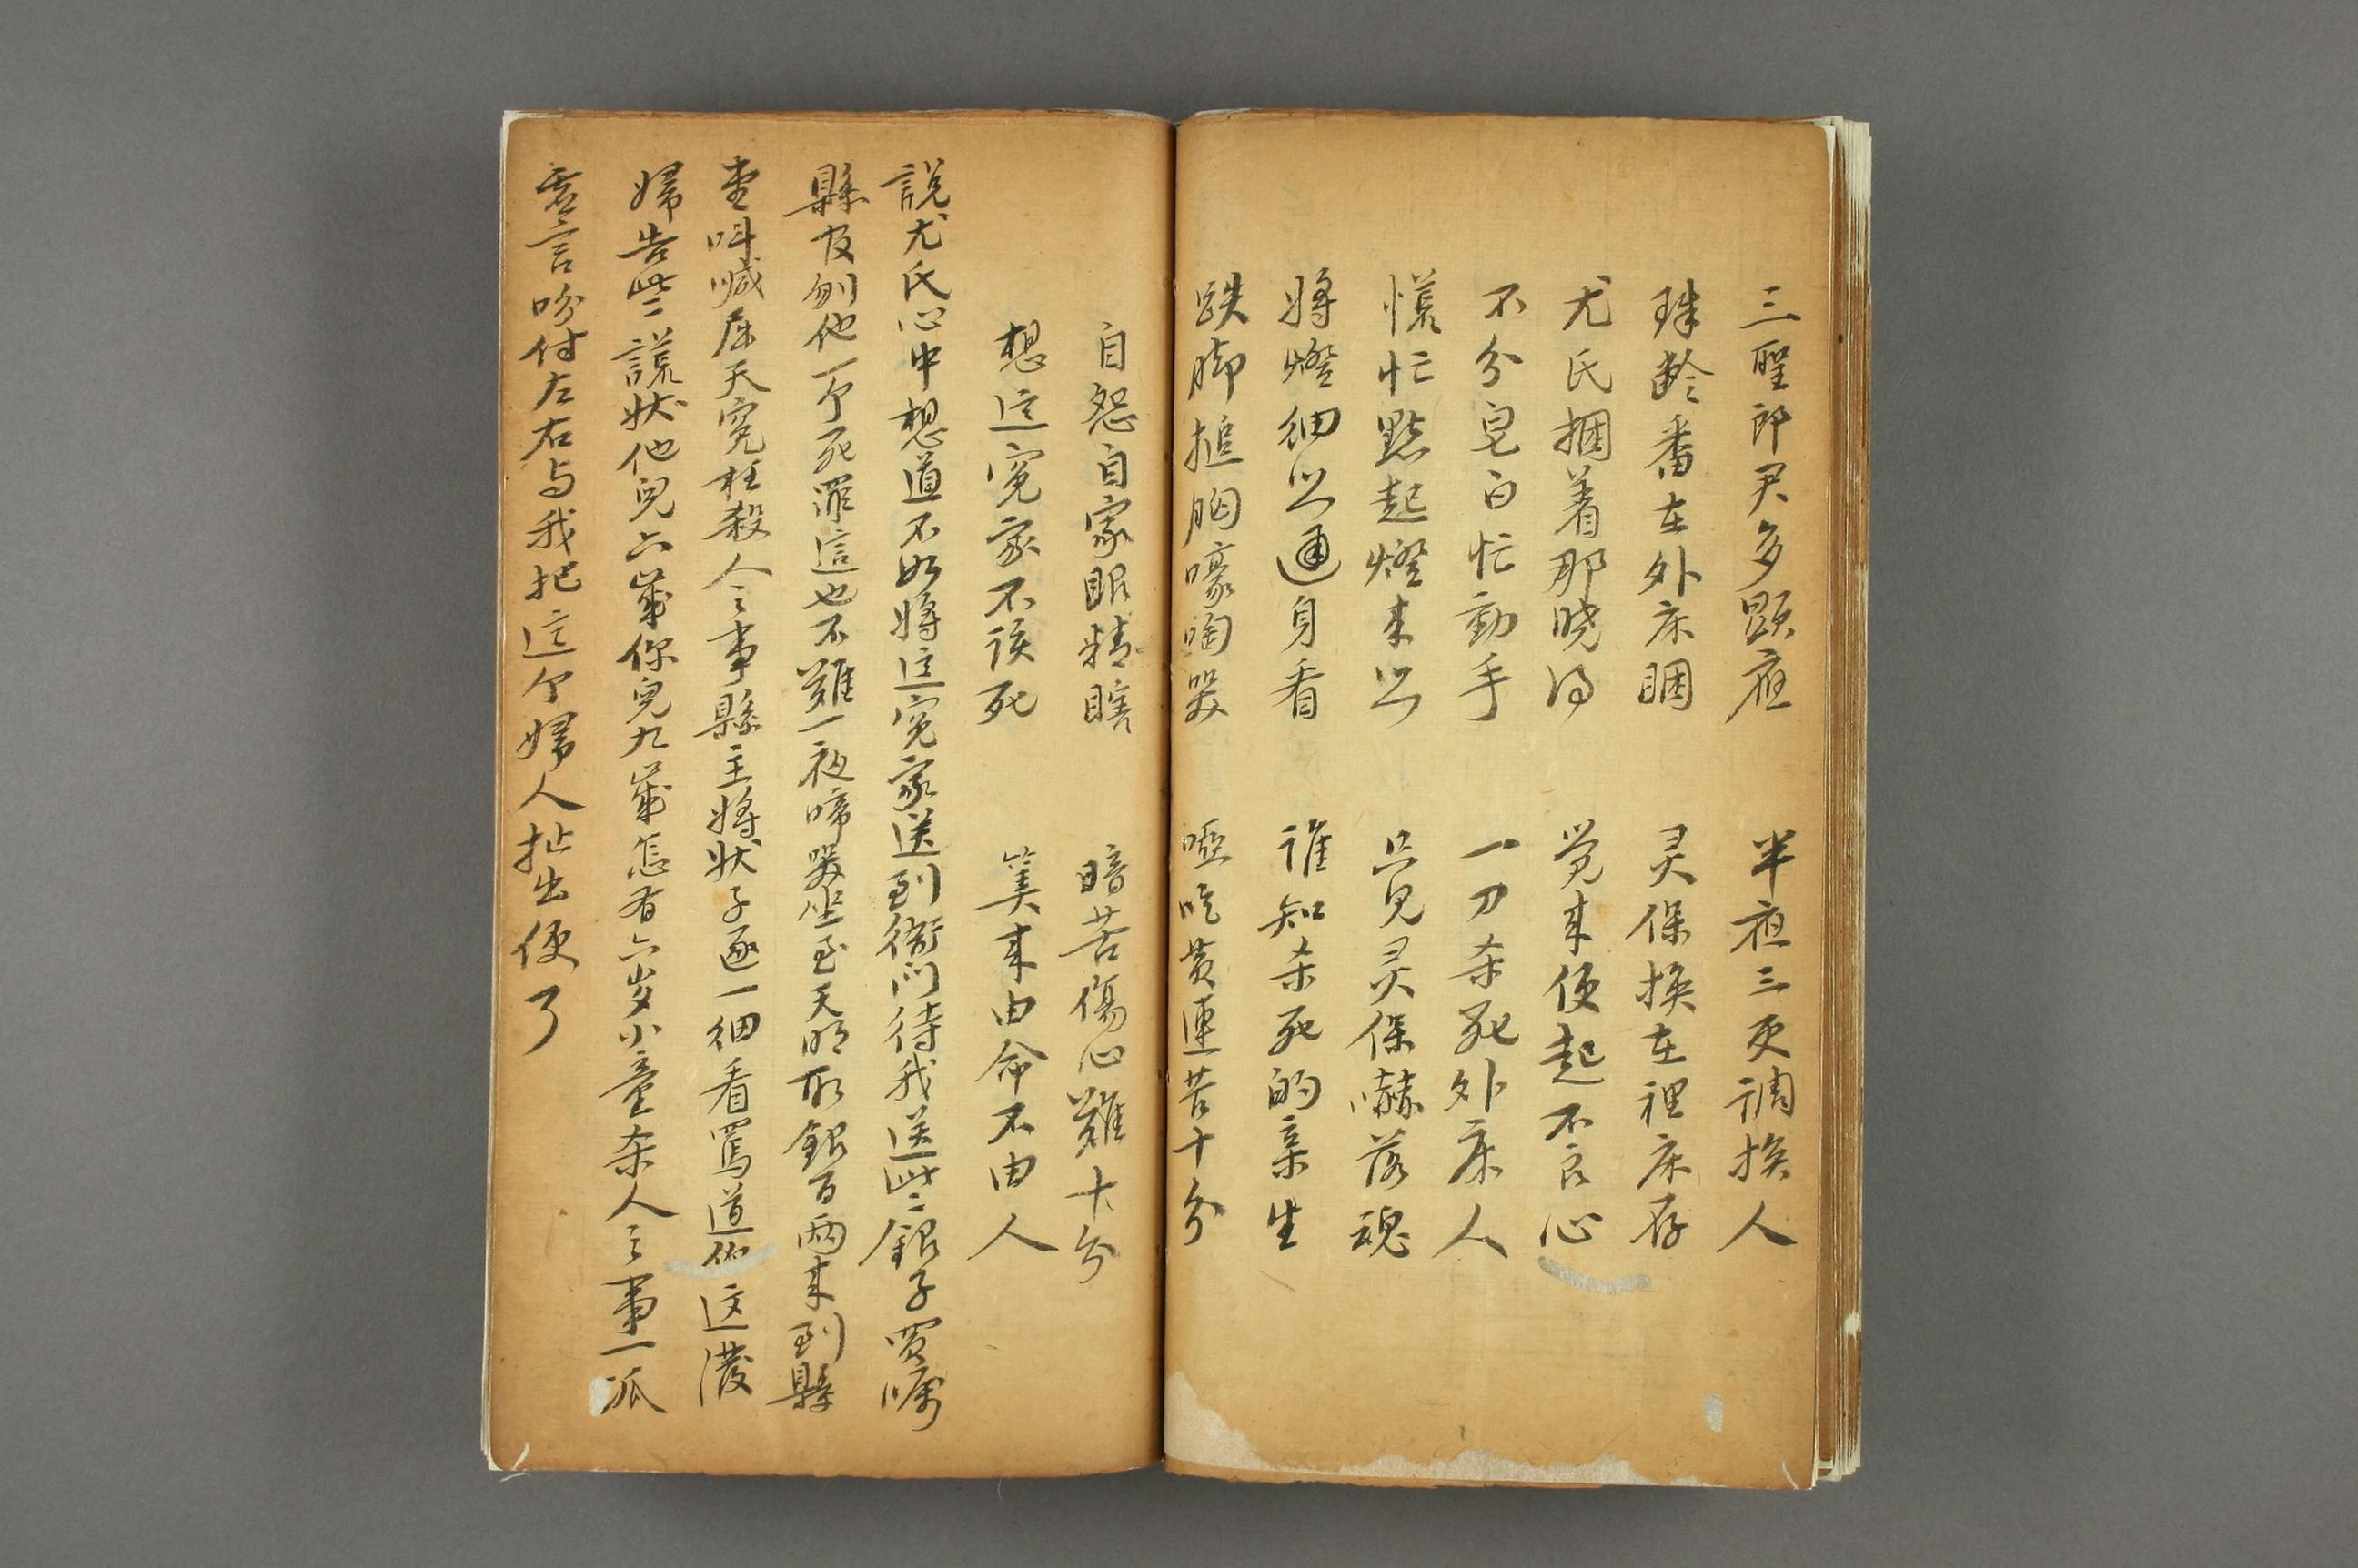 三聖郎君多顕應 半夜三更調换人
珠齡番在外床睏 灵保换在裡床存
尤氏捆着那晓得 覺来便起不良心
不分皂白忙動手 一刀杀死外床人
慌忙點起燈来照 只見灵保嚇落魂
將燈細照通身看 誰知杀死的亲生
跌脚搥胸嚎啕哭 啞吃黄連苦十分
自怨自家眼精瞎 暗苦傷心難十分
想這寃家不該死 算来由命不由人
説尤氏心中想道不如將這寃家送到衙门待我送些銀子買嘱
縣官剐他一个死罪這也不難一夜啼哭坐至天明取銀百兩来到縣
堂呌喊屈天寃枉殺人之事縣主將狀子逐一細看罵道你这潑
婦告些謊狀他兒六歲你兒九歲怎有六岁小童杀人之事一派
虚言吩付左右与我把這个婦人扯出便了